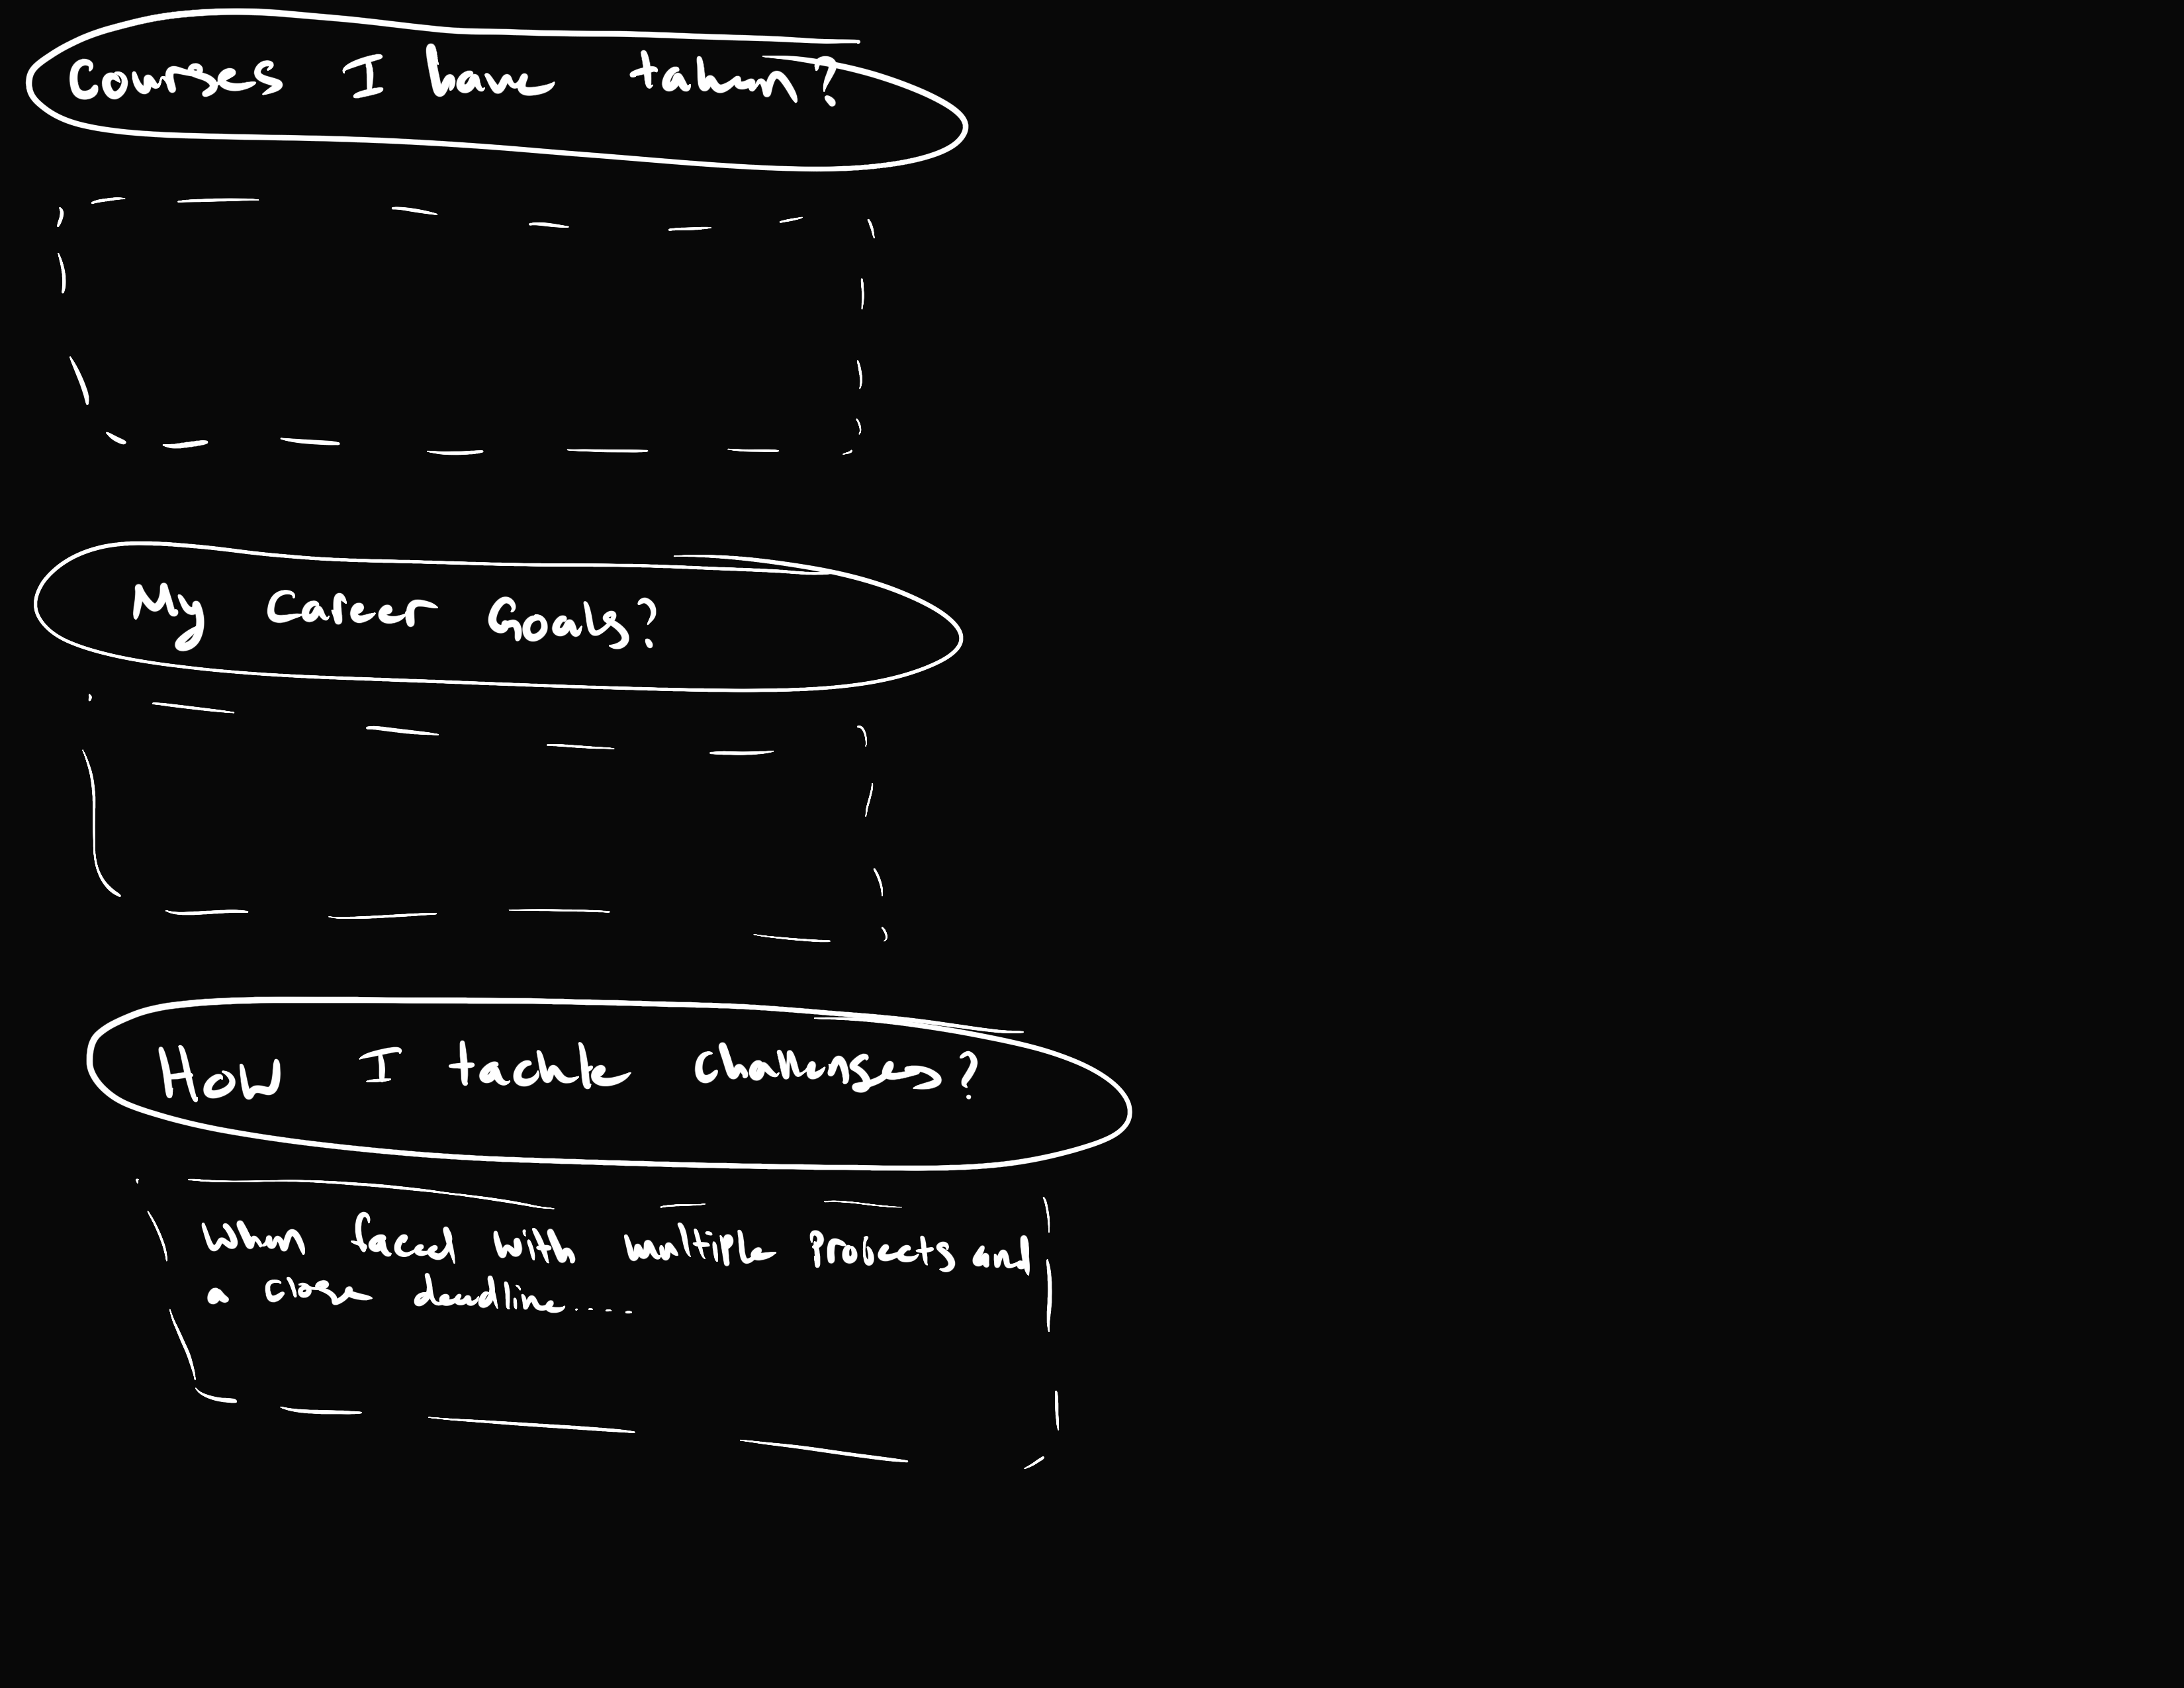 Courses I have taken?
My Career Goals?
How I tackle challenges?
When faced with multiple Projects and
a close deadline....